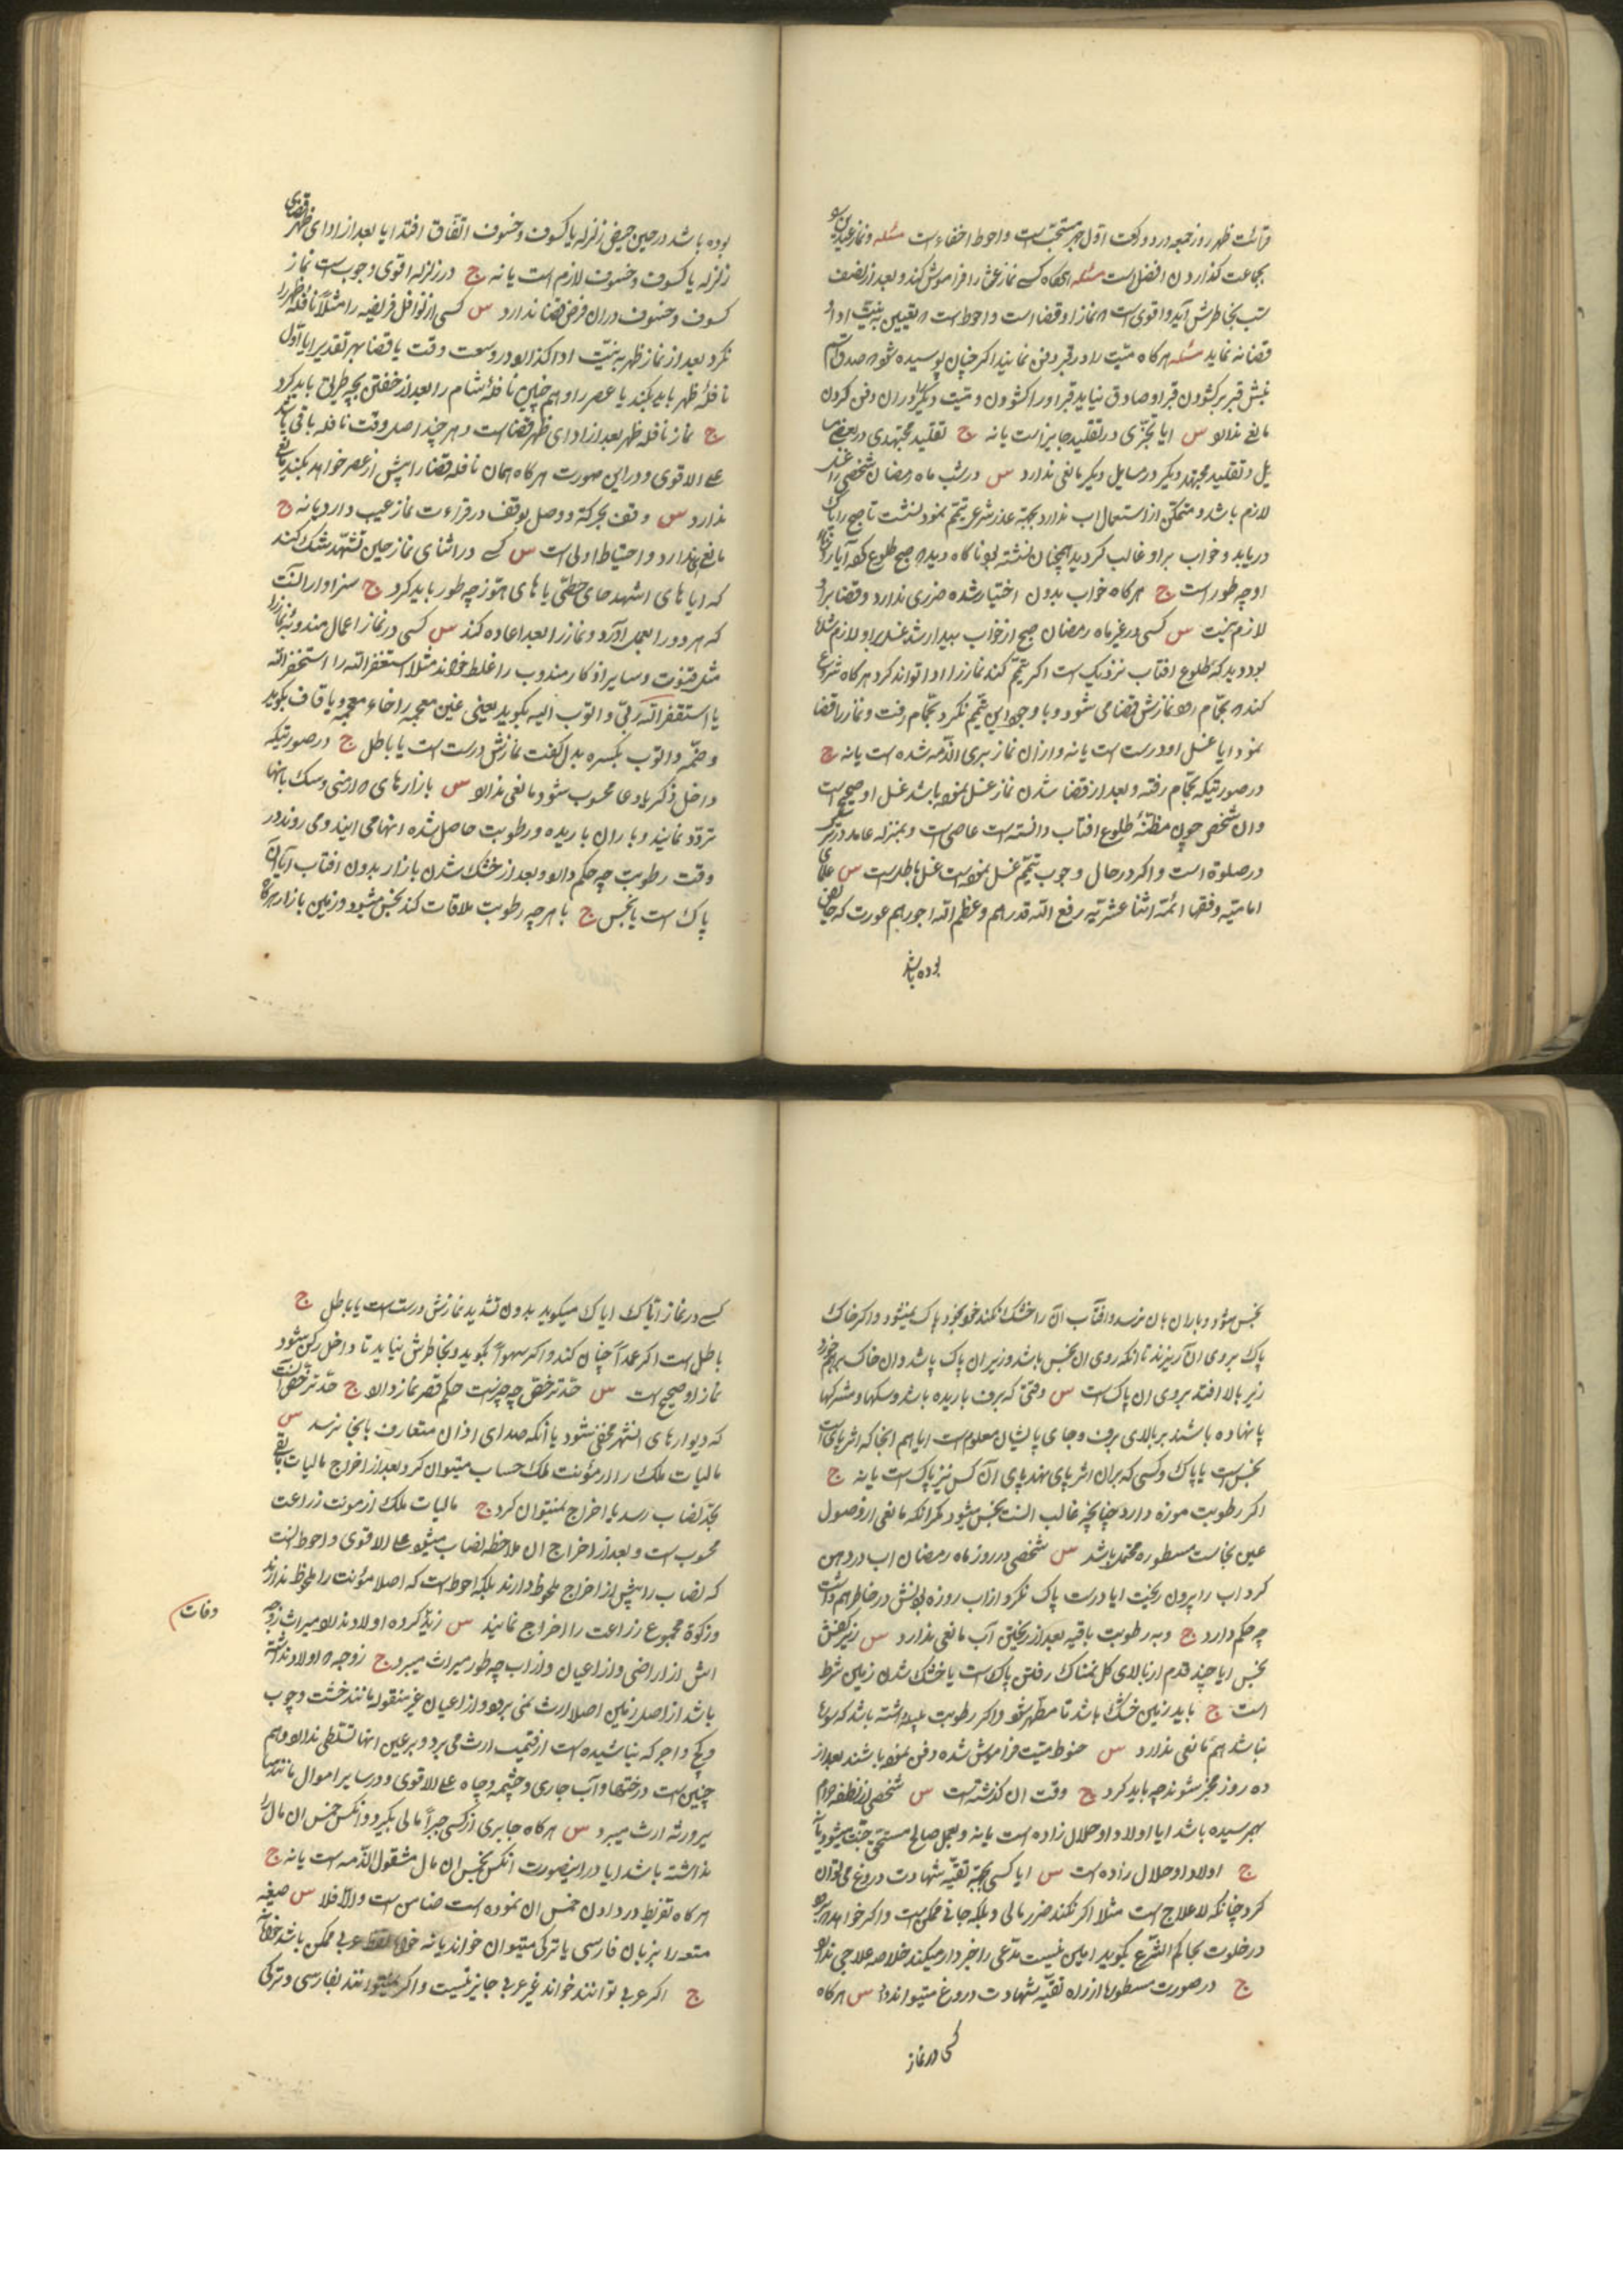 قرائت ظهر روز جمعه در دو رکعت اول جهر مستحبّ است و احوط اخفاء است مسئله و نماز عیدین
بجماعت کذاردن افضل است مسئله هرکاه کسے نماز عشا را فراموش کند و بعد از نصف
شب بخاطرش آید و اقوی است که نماز او قضا است و احوط است که تعیین به نیّت ادا و
قضا نه نماید مسئله هرکاه میّت را در قبر دفن نمایند اکر چنان پوسیده شود که صدق اسم
نبش قبر بر کشودن قبر او صادق نیاید قبر او را کشودن و میّت دیکر در ان دفن کردن
مانع ندارد س ایا تجزّی در تقلید جایز است یا نه ج تقلید مجتهدی در بعض مسا
یل و تقلید مجتهد دیکر در مسایل دیکر مانعی ندارد س در شب ماه رمضان شخصی را غسل
لازم باشد و متمکن از استعمال اب ندارد بجهة عذر شرعی تیمّم نمود نشست تا صبح را پاک
دریابد و خواب بر او غالب کردید همچنان نشسته بود ناکاه دید که صبح طلوع کرده آیا روزه
او چه طور است ج هرکاه خواب بدون اختیار شده ضرری ندارد و قضا بر او
لازم نیست س کسی در غیر ماه رمضان صبح از خواب بیدار شد غسل بر او لازم شده
بود دید که طلوع افتاب نزدیک است اکر تیمّم کند نماز را ادا تواند کرد هرکاه شروع
کند که بحمّام رود نمازش قضا می شود و با وجود این تیمّم نکرد بحمّام رفت و نماز را قضا
نمود ایا غسل او درست است یا نه و از ان نماز بری الذّمه شده است یا نه ج
در صورتیکه بحمّام رفته و بعد از قضا شدن نماز غسل نموده باشد غسل او صحیح است
وان شخص چون مظنّهٔ طلوع افتاب دانسته است عاصی است و بمنزله عامد در ترک
در صلوة است و اکر در حال وجوب تیمّم غسل نموده است غسل باطل است س علمای
امامیّه و فقهاء ائمّه اثنا عشریّه رفع اللّه قدرهم و عظم اللّه اجورهم عورت که حایض
بوده باشد
بوده باشد در حین حیض زلزله یا کسوف و خسوف اتّفاق افتد ایا بعد از ادای ظهر قضای
زلزله یا کسوف و خسوف لازم است یا نه ج در زلزله اقوی وجوب است نماز
کسوف و خسوف در ان فرض قضا ندارد س کسی از نوافل فریضه را مثلاً نافلهٔ ظهر را
نکرد بعد از نماز ظهر به نیّت ادا کذارد در وسعت وقت یا قضا بهر تقدیر ایا آول
نافلهٔ ظهر باید بکند یا عصر را و هم چنین نافلهٔ شام را بعد از خفتن بچه طریق باید کرد
ج نماز نافله ظهر بعد از ادای ظهر قضا است و هر چند اصل وقت نافله باقی باشد
علے الاقوی و در این صورت هرکاه همان نافله قضا را پیش از عصر خواهد بکند مانعی
ندارد س وقف بحرکة و وصل بوقف در قراءت نماز عیب دارد یا نه ج
مانعی ندارد و احتیاط اولی است س کسے در اثنای نماز حین تشهّد شک کند
که ایا های اشهد حای حطّی یا های هوّز چه طور باید کرد ج سزاوار انست
که هر دو را بعمل آورد و نماز را بعد اعاده کند س کسی در نماز اعمال مندوبهٔ نماز را
مثل قنوت و سایر اذکار مندوب را غلط خواند مثلا استغفر اللّه را استخفر اللّه
یا استقفر اللّه ربّی و اتوب الیه بکوید یعنی غین معجمه را خاء معجمه و یا قاف بکوید
و ضمّه و اتوب بکسره بدل کفت نمازش درست است یا باطل ج در صورتیکه
داخل ذکر یا دعا محسوب شود مانعی ندارد س بازارهای که ارمنی و سک بانها
تردّد نمایند و باران باریده و رطوبت حاصل شده انها می ایند و می روند در
وقت رطوبت چه حکم دارد و بعد از خشک شدن بازار بدون افتاب ایا ان
پاک است یا نجس ج با هر چه رطوبت ملاقات کند نجس میشود و زمین بازار هرکاه
نجس میشود و باران بان نرسد و افتاب آن را خشک نکند خود بخود پاک نمیشود و اکر خاک
پاک بروی ان ریزند تا انکه روی ان نجس باشد و زیر ان پاک باشد وان خاک بر هم خورد
زیر بالا افتد بروی ان پاک است س وقتی که برف باریده باشد و سکها و مشرکها
پا نهاده باشند بر بالای برف و جای پا ایشان معلوم است ایا هم انجا که اثر پای است
نجس است یا پاک و کسی که بر ان اثر پای نهد پای آن کس نیز پاک است یا نه ج
اکر رطوبت موزه دارد چنانچه غالب انست نجس میشود مکر انکه مانعی از وصول
عین نجاست مسطوره محتمل باشد س شخصی در روز ماه رمضان اب در دهن
کرد اب را بیرون ریخت ایا درست پاک نکرد از اب روزه بودنش در خاطر هم داشت
چه حکم دارد ج و به رطوبت باقیه بعد از ریختن آب مانعی ندارد س زیر کفش
نجس ایا چند قدم از بالای کل نمناک رفتن پاک است یا خشک شدن زمین شرط
است ج باید زمین خشک باشد تا مطهر شود و اکر رطوبت داشته باشد که
نباشد هم مانعی ندارد س حنوط میّت فراموش شده دفن نموده باشند بعد از
ده روز مخبر شوند چه باید کرد ج وقت ان کذشته است س شخصی از نطفه حرام
بهم رسیده باشد ایا اولاد او حلال زاده است یا نه و بعمل صالح مستحق جنّت میشود یا نه
ج اولاد او حلال زاده است س ایا کسی بجهة تقیّه شهادت دروغ می توان
کرد چنانکه لاعلاج است مثلا اکر نکند ضرر مالی و بلکه جانی ممکن است و اکر خواهد که برود
در خلوت بحاکم الشّرع بکوید امین نیست مدّعی را خبردار میکند خلاصه علاجی ندارد
ج در صورت مسطوره از راه تقیّه شهادت دروغ میتواند داد س هرکاه
کسی در نماز
کسے در نماز ایّاک ایاک میکوید بدون تشدید نمازش درست است یا باطل ج
باطل است اکر عمداً چنان کند و اکر سهواً بکوید و بخاطرش نیاید تا داخل رکن شود
نماز او صحیح است س حدّ ترخّص چه چیز است حکم قصر نماز دارد ج حدّ ترخّص انست
که دیوارهای انشهر مخفی شود یا انکه صدای اذان متعارف بانجا نرسد س
مالیات ملک را از مؤنت ملک حساب میتوان کرد و بعد از اخراج مالیات باقی
بحدّ نصاب رسد یا اخراج نمیتوان کرد ج مالیات ملک از مونت زراعت
محسوب است و بعد از اخراج ان ملاحظه نصاب میشود علے الاقوی و احوط انست
که نصاب را پیش از اخراج ملحوظ دارند بلکه احوط است که اصلا مؤنت را ملحوظ ندارند
و زکوة مجموع زراعت را اخراج نمایند س زید کرده اولاد ندارد میراث زوجه
وفات
اش از اراضی و از اعیان و از اب چه طور میراث میبرد ج زوجه که اولاد نداشته
باشد از اصل زمین اصلا ارث نمی برد و از اعیان غیر منقوله مانند خشت و چوب
و کچ و اجر که بنا شیده است از قیمت ارث می برد و بر عین انها تسلّطی ندارد و هم
چنین است درختها و آب جاری و چشمه و چاه علے الاقوی و در سایر اموال مانند سا
یر ورثه ارث میبرد س هرکاه جابری از کسی جبراً مالی بکیرد و انکس خمس ان مال را
نداشته باشد ایا در اینصورت انکس بخمس ان مال مشغول الذّمه است یا نه ج
هرکاه تفریط در دادن خمس ان نموده است ضامن است و الّا فلا س صیغه
متعه را بزبان فارسی یا ترکی میتوان خواند یا نه عربی ممکن باشد
ج اکر عربی توانند خواند غیر عربی جایز نیست و اکر نمیتوانند بفارسی و ترکی